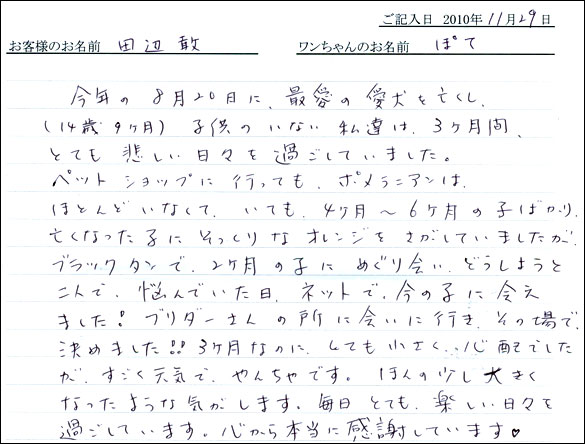 ご記入日 2010年11月29日
お客様のお名前 田辺 敦 ワンちゃんのお名前 ぽて
今年の8月20日に、最愛の愛犬を亡くし、
(14歳9ヶ月) 子供のいない私達は、3ヶ月間、
とても悲しい日々を過ごしていました。
ペットショップに行っても、ポメラニアンは、
ほとんどいなくて、いても、4ヶ月〜6ヶ月の子ばかり、
亡くなった子にそっくりなオレンジをさがしていましたが、
ブラックタンで、2ヶ月の子にめぐり会い、どうしようと
二人で、悩んでいた日、ネットで、今の子に会え
ました! ブリダーさんの所に会いに行き、その場で、
決めました!! 3ヶ月なのに、とても小さく、心配でした
が、すごく元気で、やんちゃです。ほんの少し大きく
なったような気がします。毎日とても、楽しい日々を
過ごしています。心から本当に感謝しています♥